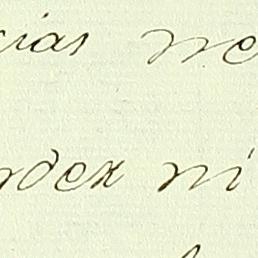 cias ne
ndex ni